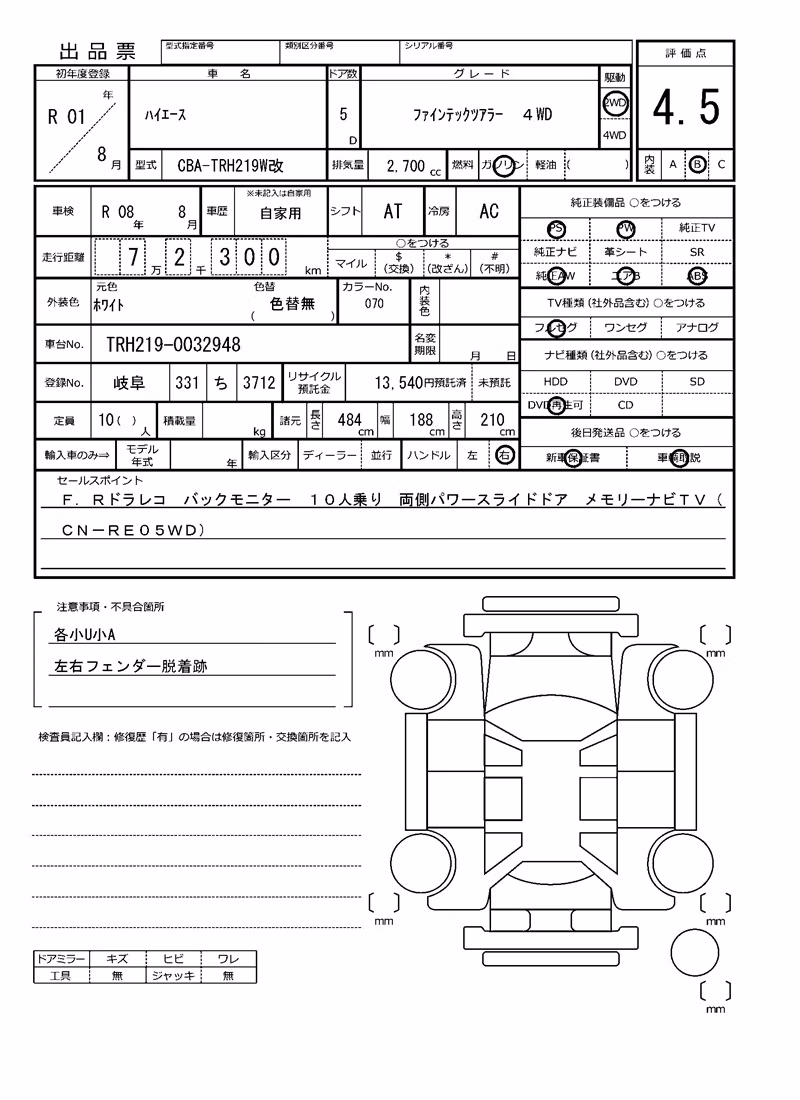 出品票 型式指定番号 類別区分番号 シリアル番号 評価点
初年度登録 車 名 ドア数 グレード 駆動
R 01 年 ハイエース 5 D ファインテックツアラー 4WD 2WD 4.5
8 月 4WD
型式 CBA-TRH219W改 排気量 2,700 cc 燃料 ガソリン 軽油 ( ) 内装 A B C
車検 R 08 年 8 月 車歴 ※未記入は自家用 自家用 シフト AT 冷房 AC 純正装備品 ○をつける
PS PW 純正TV
走行距離 7 万 2 千 3 0 0 km ○をつける 純正ナビ 革シート SR
マイル $ (交換) * (改ざん) # (不明) 純正AW エアB ABS
外装色 元色 ホワイト 色替 色替無 ( ) カラーNo. 070 内装色 TV種類 (社外品含む) ○をつける
フルセグ ワンセグ アナログ
車台No. TRH219-0032948 名変期限 月 日 ナビ種類 (社外品含む) ○をつける
登録No. 岐阜 331 ち 3712 リサイクル預託金 13,540円預託済 未預託 HDD DVD SD
DVD再生可 CD
定員 10 ( ) 人 積載量 kg 諸元 長さ 484 cm 幅 188 cm 高さ 210 cm 後日発送品 ○をつける
輸入車のみ⇒ モデル年式 年 輸入区分 ディーラー 並行 ハンドル 左 右 新車保証書 車輌取説
セールスポイント
F．Rドラレコ バックモニター 10人乗り 両側パワースライドドア メモリーナビTV（
CN－RE05WD）
注意事項・不具合箇所
各小U小A
左右フェンダー脱着跡
検査員記入欄：修復歴「有」の場合は修復箇所・交換箇所を記入
mm mm
mm mm
mm
ドアミラー キズ ヒビ ワレ
工具 無 ジャッキ 無